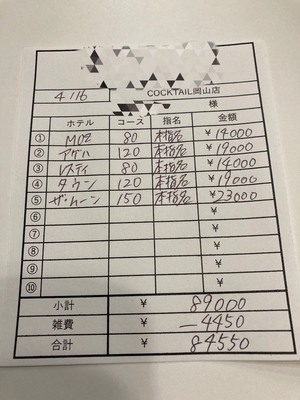 4/16 COCKTAIL岡山店
様
ホテル コース 指名 金額
① MOZ 80 本指名 ¥14000
② アゲハ 120 本指名 ¥19000
③ レスティ 80 本指名 ¥14000
④ タウン 120 本指名 ¥19000
⑤ ザ・ムーン 150 本指名 ¥23000
⑥ ¥
⑦ ¥
⑧ ¥
⑨ ¥
⑩ ¥
小計 ¥ 89000
雑費 ¥ -4450
合計 ¥ 84550